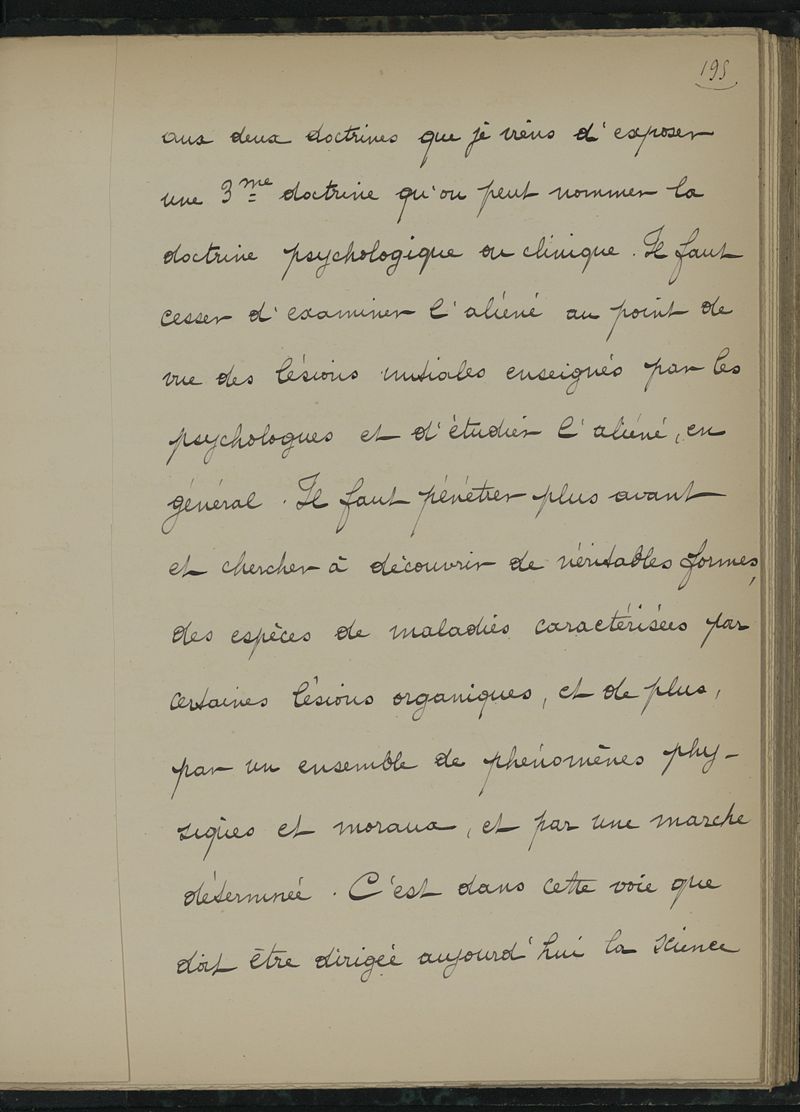 195
aux deux doctrines que je viens d'exposer
une 3me doctrine qu'on peut nommer la
doctrine psychologique ou clinique. Il faut
cesser d'examiner l'aliéné au point de
vue des lésions initiales enseignés par les
psychologues et d'étudier l'aliéné, en
général. Il faut pénétrer plus avant
et chercher à découvrir de véritables formes,
des espèces de maladies caractérisées par
certaines lésions organiques, et de plus,
par un ensemble de phénomènes phy-
siques et moraux, et par une marche
déterminée. C'est dans cette voie que
doit être dirigée aujourd'hui la science